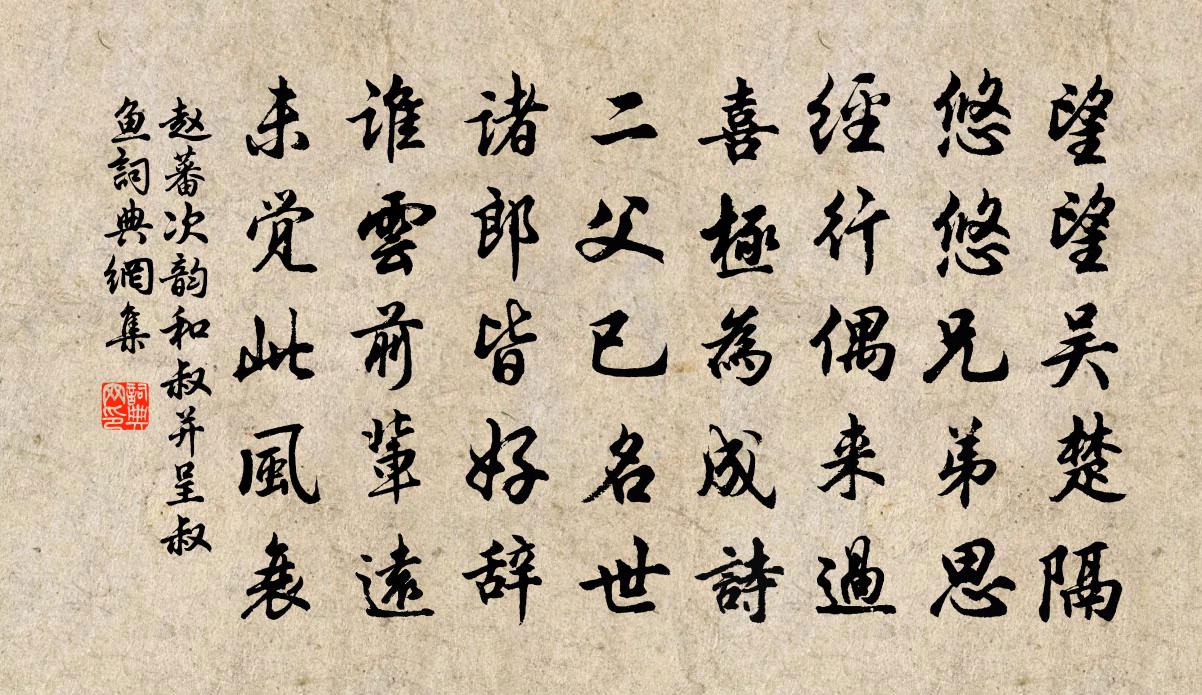 望望吴楚隔
悠悠兄弟思
經行偶来過
喜極為成詩
二父已名世
诸郎皆好辞
谁雲前輩遠
未觉此風衰
赵蕃次韵和叔并呈叔
鱼詞典網集
詞典
网印